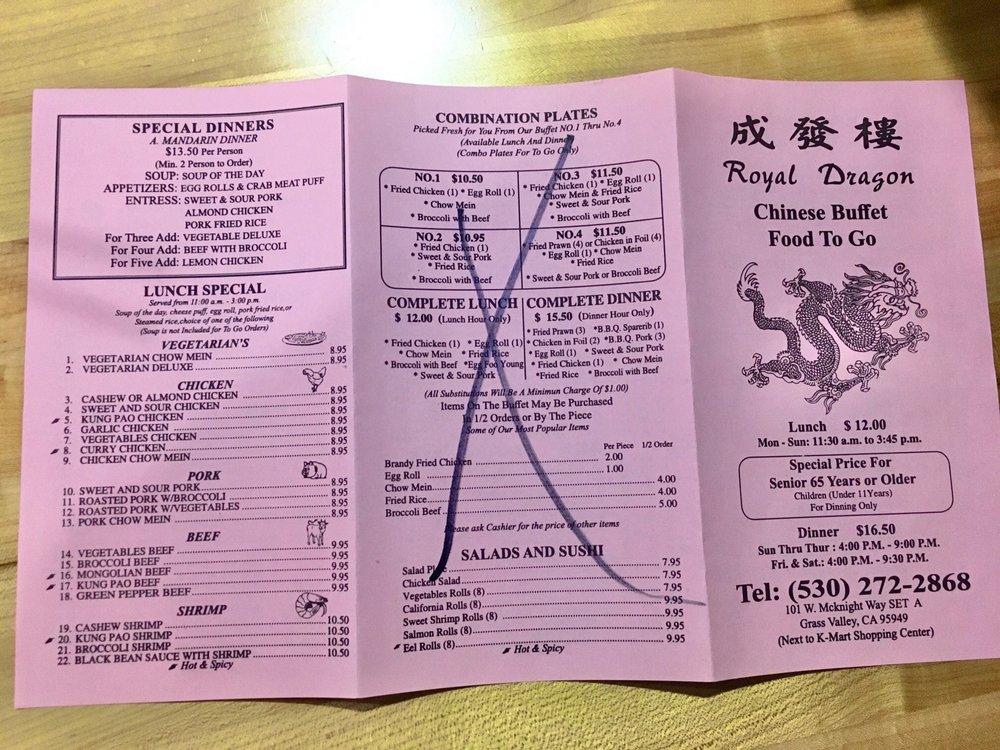 SPECIAL DINNERS
A. MANDARIN DINNER
$13.50 Per Person
(Min. 2 Person to Order)
SOUP: SOUP OF THE DAY
APPETIZERS: EGG ROLLS & CRAB MEAT PUFF
ENTRESS: SWEET & SOUR PORK
ALMOND CHICKEN
PORK FRIED RICE
For Three Add: VEGETABLE DELUXE
For Four Add: BEEF WITH BROCCOLI
For Five Add: LEMON CHICKEN
LUNCH SPECIAL
Served from 11:00 a.m. - 3:00 p.m.
Soup of the day, cheese puff, egg roll, pork fried rice,or
Steamed rice,choice of one of the following
(Soup is not Included for To Go Orders)
VEGETARIAN'S
1. VEGETARIAN CHOW MEIN 8.95
2. VEGETARIAN DELUXE 8.95
CHICKEN
3. CASHEW OR ALMOND CHICKEN 8.95
4. SWEET AND SOUR CHICKEN 8.95
5. KUNG PAO CHICKEN 8.95
6. GARLIC CHICKEN 8.95
7. VEGETABLES CHICKEN 8.95
8. CURRY CHICKEN 8.95
9. CHICKEN CHOW MEIN 8.95
PORK
10. SWEET AND SOUR PORK 8.95
11. ROASTED PORK W/BROCCOLI 8.95
12. ROASTED PORK W/VEGETABLES 8.95
13. PORK CHOW MEIN 8.95
BEEF
14. VEGETABLES BEEF 9.95
15. BROCCOLI BEEF 9.95
16. MONGOLIAN BEEF 9.95
17. KUNG PAO BEEF 9.95
18. GREEN PEPPER BEEF 9.95
SHRIMP
19. CASHEW SHRIMP 10.50
20. KUNG PAO SHRIMP 10.50
21. BROCCOLI SHRIMP 10.50
22. BLACK BEAN SAUCE WITH SHRIMP 10.50
Hot & Spicy
COMBINATION PLATES
Picked Fresh for You From Our Buffet NO.1 Thru No.4
(Available Lunch And Dinner)
(Combo Plates For To Go Only)
NO.1 $10.50
* Fried Chicken (1) * Egg Roll (1)
* Chow Mein
* Broccoli with Beef
NO.3 $11.50
* Fried Chicken (1) * Egg Roll (1)
* Chow Mein & Fried Rice
* Sweet & Sour Pork
* Broccoli with Beef
NO.2 $10.95
* Fried Chicken (1)
* Sweet & Sour Pork
* Fried Rice
* Broccoli with Beef
NO.4 $11.50
* Fried Prawn (4) or Chicken in Foil (4)
* Egg Roll (1) * Chow Mein
* Fried Rice
* Sweet & Sour Pork or Broccoli Beef
COMPLETE LUNCH
$ 12.00 (Lunch Hour Only)
* Fried Chicken (1) * Egg Roll (1)
* Chow Mein * Fried Rice
* Broccoli with Beef *Egg Foo Young
* Sweet & Sour Pork
COMPLETE DINNER
$ 15.50 (Dinner Hour Only)
* Fried Prawn (3) *B.B.Q. Sparerib (1)
* Chicken in Foil (2) *B.B.Q. Pork (3)
* Egg Roll (1) * Sweet & Sour Pork
* Fried Chicken (1) * Chow Mein
*Fried Rice * Broccoli with Beef
(All Substitutions Will Be A Minimun Charge Of $1.00)
Items On The Buffet May Be Purchased
In 1/2 Orders or By The Piece
Some of Our Most Popular Items
Per Piece 1/2 Order
Brandy Fried Chicken 2.00
Egg Roll 1.00
Chow Mein 4.00
Fried Rice 4.00
Broccoli Beef 5.00
Please ask Cashier for the price of other items
SALADS AND SUSHI
Salad 7.95
Chicken Salad 7.95
Vegetables Rolls (8) 7.95
California Rolls (8) 9.95
Sweet Shrimp Rolls (8) 9.95
Salmon Rolls (8) 9.95
Eel Rolls (8) 9.95
Hot & Spicy
成發樓
Royal Dragon
Chinese Buffet
Food To Go
Lunch $ 12.00
Mon - Sun: 11:30 a.m. to 3:45 p.m.
Special Price For
Senior 65 Years or Older
Children (Under 11Years)
For Dinning Only
Dinner $16.50
Sun Thru Thur : 4:00 P.M. - 9:00 P.M.
Fri. & Sat.: 4:00 P.M. - 9:30 P.M.
Tel: (530) 272-2868
101 W. Mcknight Way SET A
Grass Valley, CA 95949
(Next to K-Mart Shopping Center)